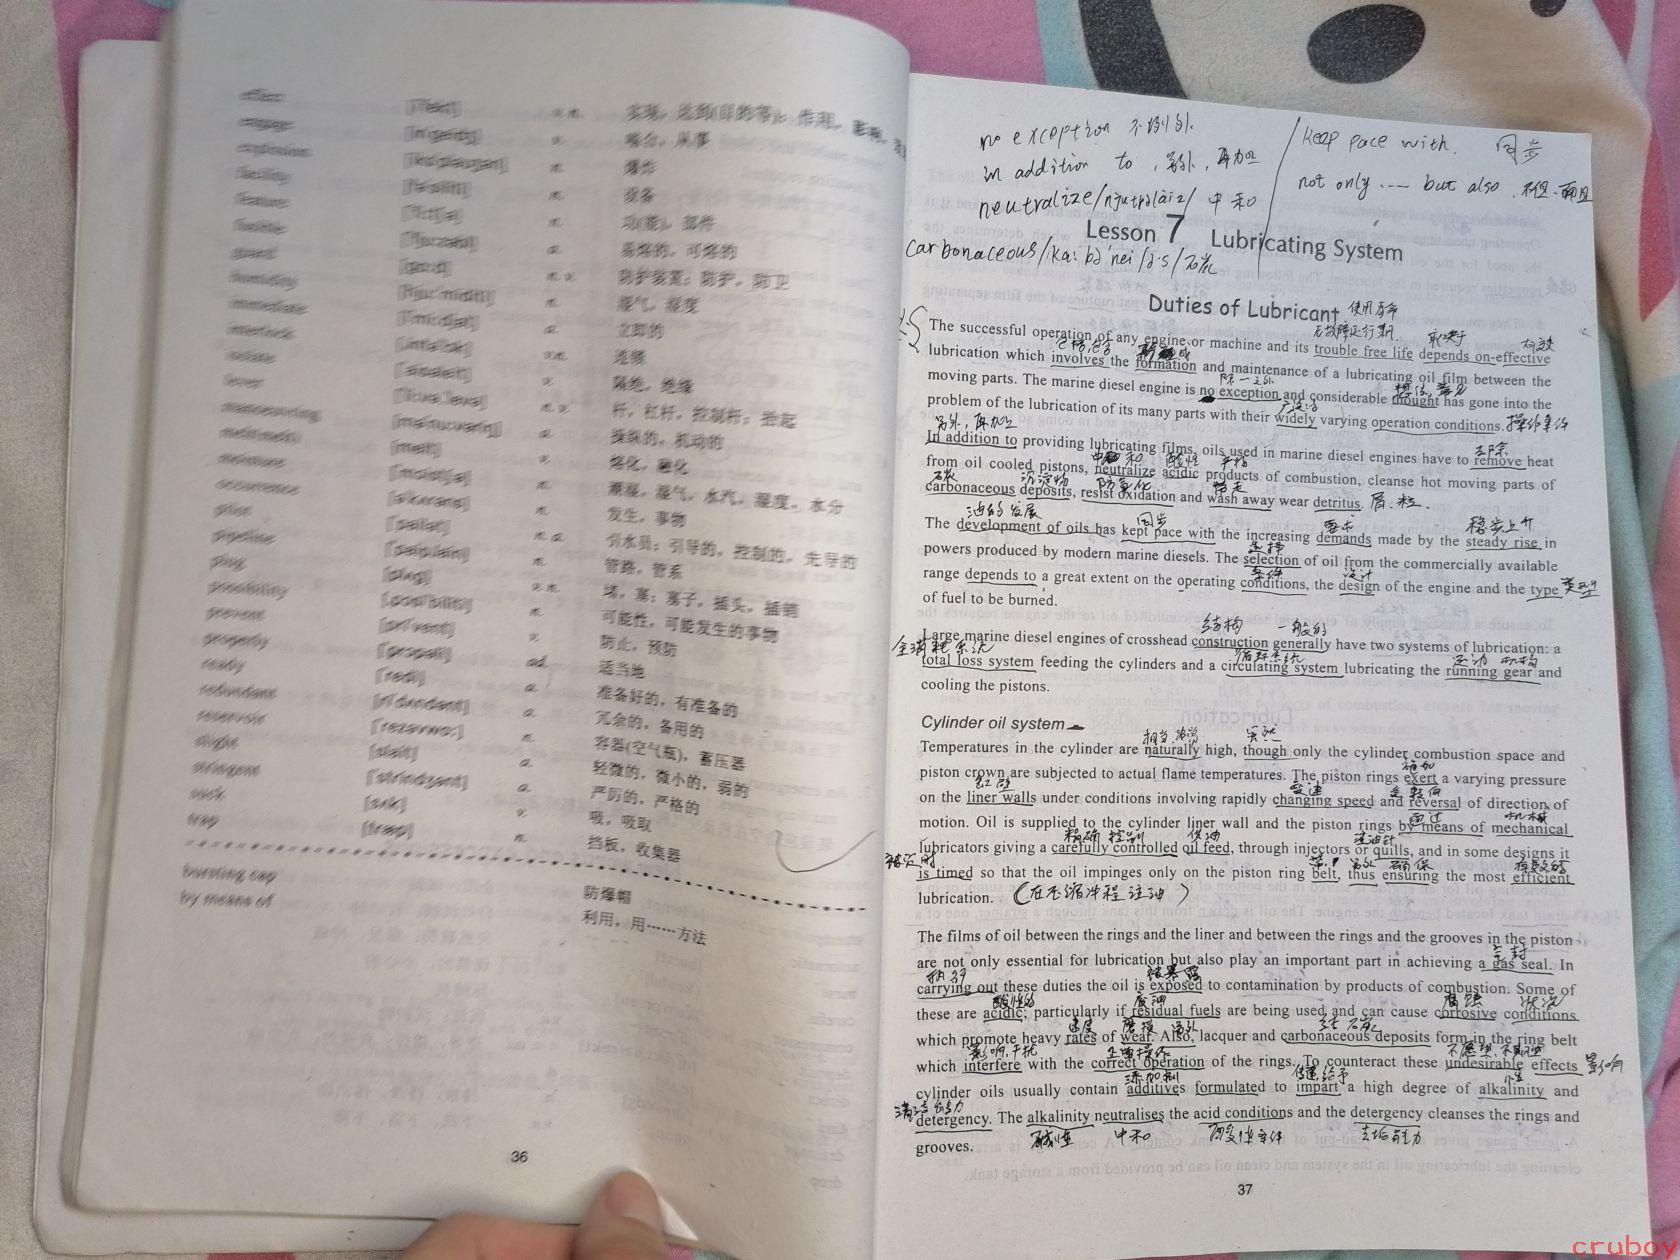 effect v. n. 实现，达到(目的等)；作用，影响，
engage v. 啮合，从事
explosion n. 爆炸
facility n. 设备
feature n. 功(能)，部件
fusible a. 易熔的，可熔的
guard n. v. 防护装置；防护，防卫
humidity n. 湿气，湿度
immediate a. 立即的
interlock v.n. 连锁
isolate v. 隔绝，绝缘
lever n. v. 杆，杠杆，控制杆；抬起
manoeuvring a. 操纵的，机动的
melt v. 熔化，融化
moisture n. 潮湿，湿气，水汽，湿度，水分
occurrence n. 发生，事物
pilot n. a. 引水员；引导的，控制的，先导的
pipeline n. 管路，管系
plug v. n. 堵，塞；塞子，插头，插销
possibility n. 可能性，可能发生的事物
prevent v. 防止，预防
properly ad. 适当地
ready a. 准备好的，有准备的
redundant a. 冗余的，备用的
reservoir n. 容器(空气瓶)，蓄压器
slight a. 轻微的，微小的，弱的
stringent a. 严厉的，严格的
suck v. 吸，吸取
trap n. 挡板，收集器
bursting cap 防爆帽
by means of 利用，用……方法
36
no exception 不例外
in addition to，另外，再加上
neutralize 中和
keep pace with. 同步
not only ---- but also 不但 而且
Lesson 7 Lubricating System
carbonaceous 石炭
Duties of Lubricant
使用寿命
无故障运行期 取决于 有效
The successful operation of any engine or machine and its trouble free life depends on effective
包括,包含
lubrication which involves the formation and maintenance of a lubricating oil film between the
moving parts. The marine diesel engine is no exception and considerable thought has gone into the
problem of the lubrication of its many parts with their widely varying operation conditions. 操作条件
另外,再加上 去除
In addition to providing lubricating films, oils used in marine diesel engines have to remove heat
中和 酸性 产物
from oil cooled pistons, neutralize acidic products of combustion, cleanse hot moving parts of
沉淀物 防氧化 带走
carbonaceous deposits, resist oxidation and wash away wear detritus. 屑.粒.
油的发展 同步 要求 稳步上升
The development of oils has kept pace with the increasing demands made by the steady rise in
选择
powers produced by modern marine diesels. The selection of oil from the commercially available
条件 设计
range depends to a great extent on the operating conditions, the design of the engine and the type 类型
of fuel to be burned.
结构 一般的
Large marine diesel engines of crosshead construction generally have two systems of lubrication: a
全消耗系统 循环系统 运动 机构
total loss system feeding the cylinders and a circulating system lubricating the running gear and
cooling the pistons.
Cylinder oil system
虽然
Temperatures in the cylinder are naturally high, though only the cylinder combustion space and
施加
piston crown are subjected to actual flame temperatures. The piston rings exert a varying pressure
缸壁 变速 转向
on the liner walls under conditions involving rapidly changing speed and reversal of direction of
通过 机械
motion. Oil is supplied to the cylinder liner wall and the piston rings by means of mechanical
精确 控制 供油 注油针
lubricators giving a carefully controlled oil feed, through injectors or quills, and in some designs it
被定时 带 确保 有效的
is timed so that the oil impinges only on the piston ring belt, thus ensuring the most efficient
lubrication. (在压缩冲程注油)
The films of oil between the rings and the liner and between the rings and the grooves in the piston
密封
are not only essential for lubrication but also play an important part in achieving a gas seal. In
执行 被暴露
carrying out these duties the oil is exposed to contamination by products of combustion. Some of
酸性的 腐蚀 状况
these are acidic; particularly if residual fuels are being used and can cause corrosive conditions
速度 磨损 另外
which promote heavy rates of wear. Also, lacquer and carbonaceous deposits form in the ring belt
影响,干扰 正确操作
which interfere with the correct operation of the rings. To counteract these undesirable effects 影响
添加剂 传递,给予
cylinder oils usually contain additives formulated to impart a high degree of alkalinity and
清洁能力
detergency. The alkalinity neutralises the acid conditions and the detergency cleanses the rings and
grooves.
碱性 中和 去垢能力
37
cruboy